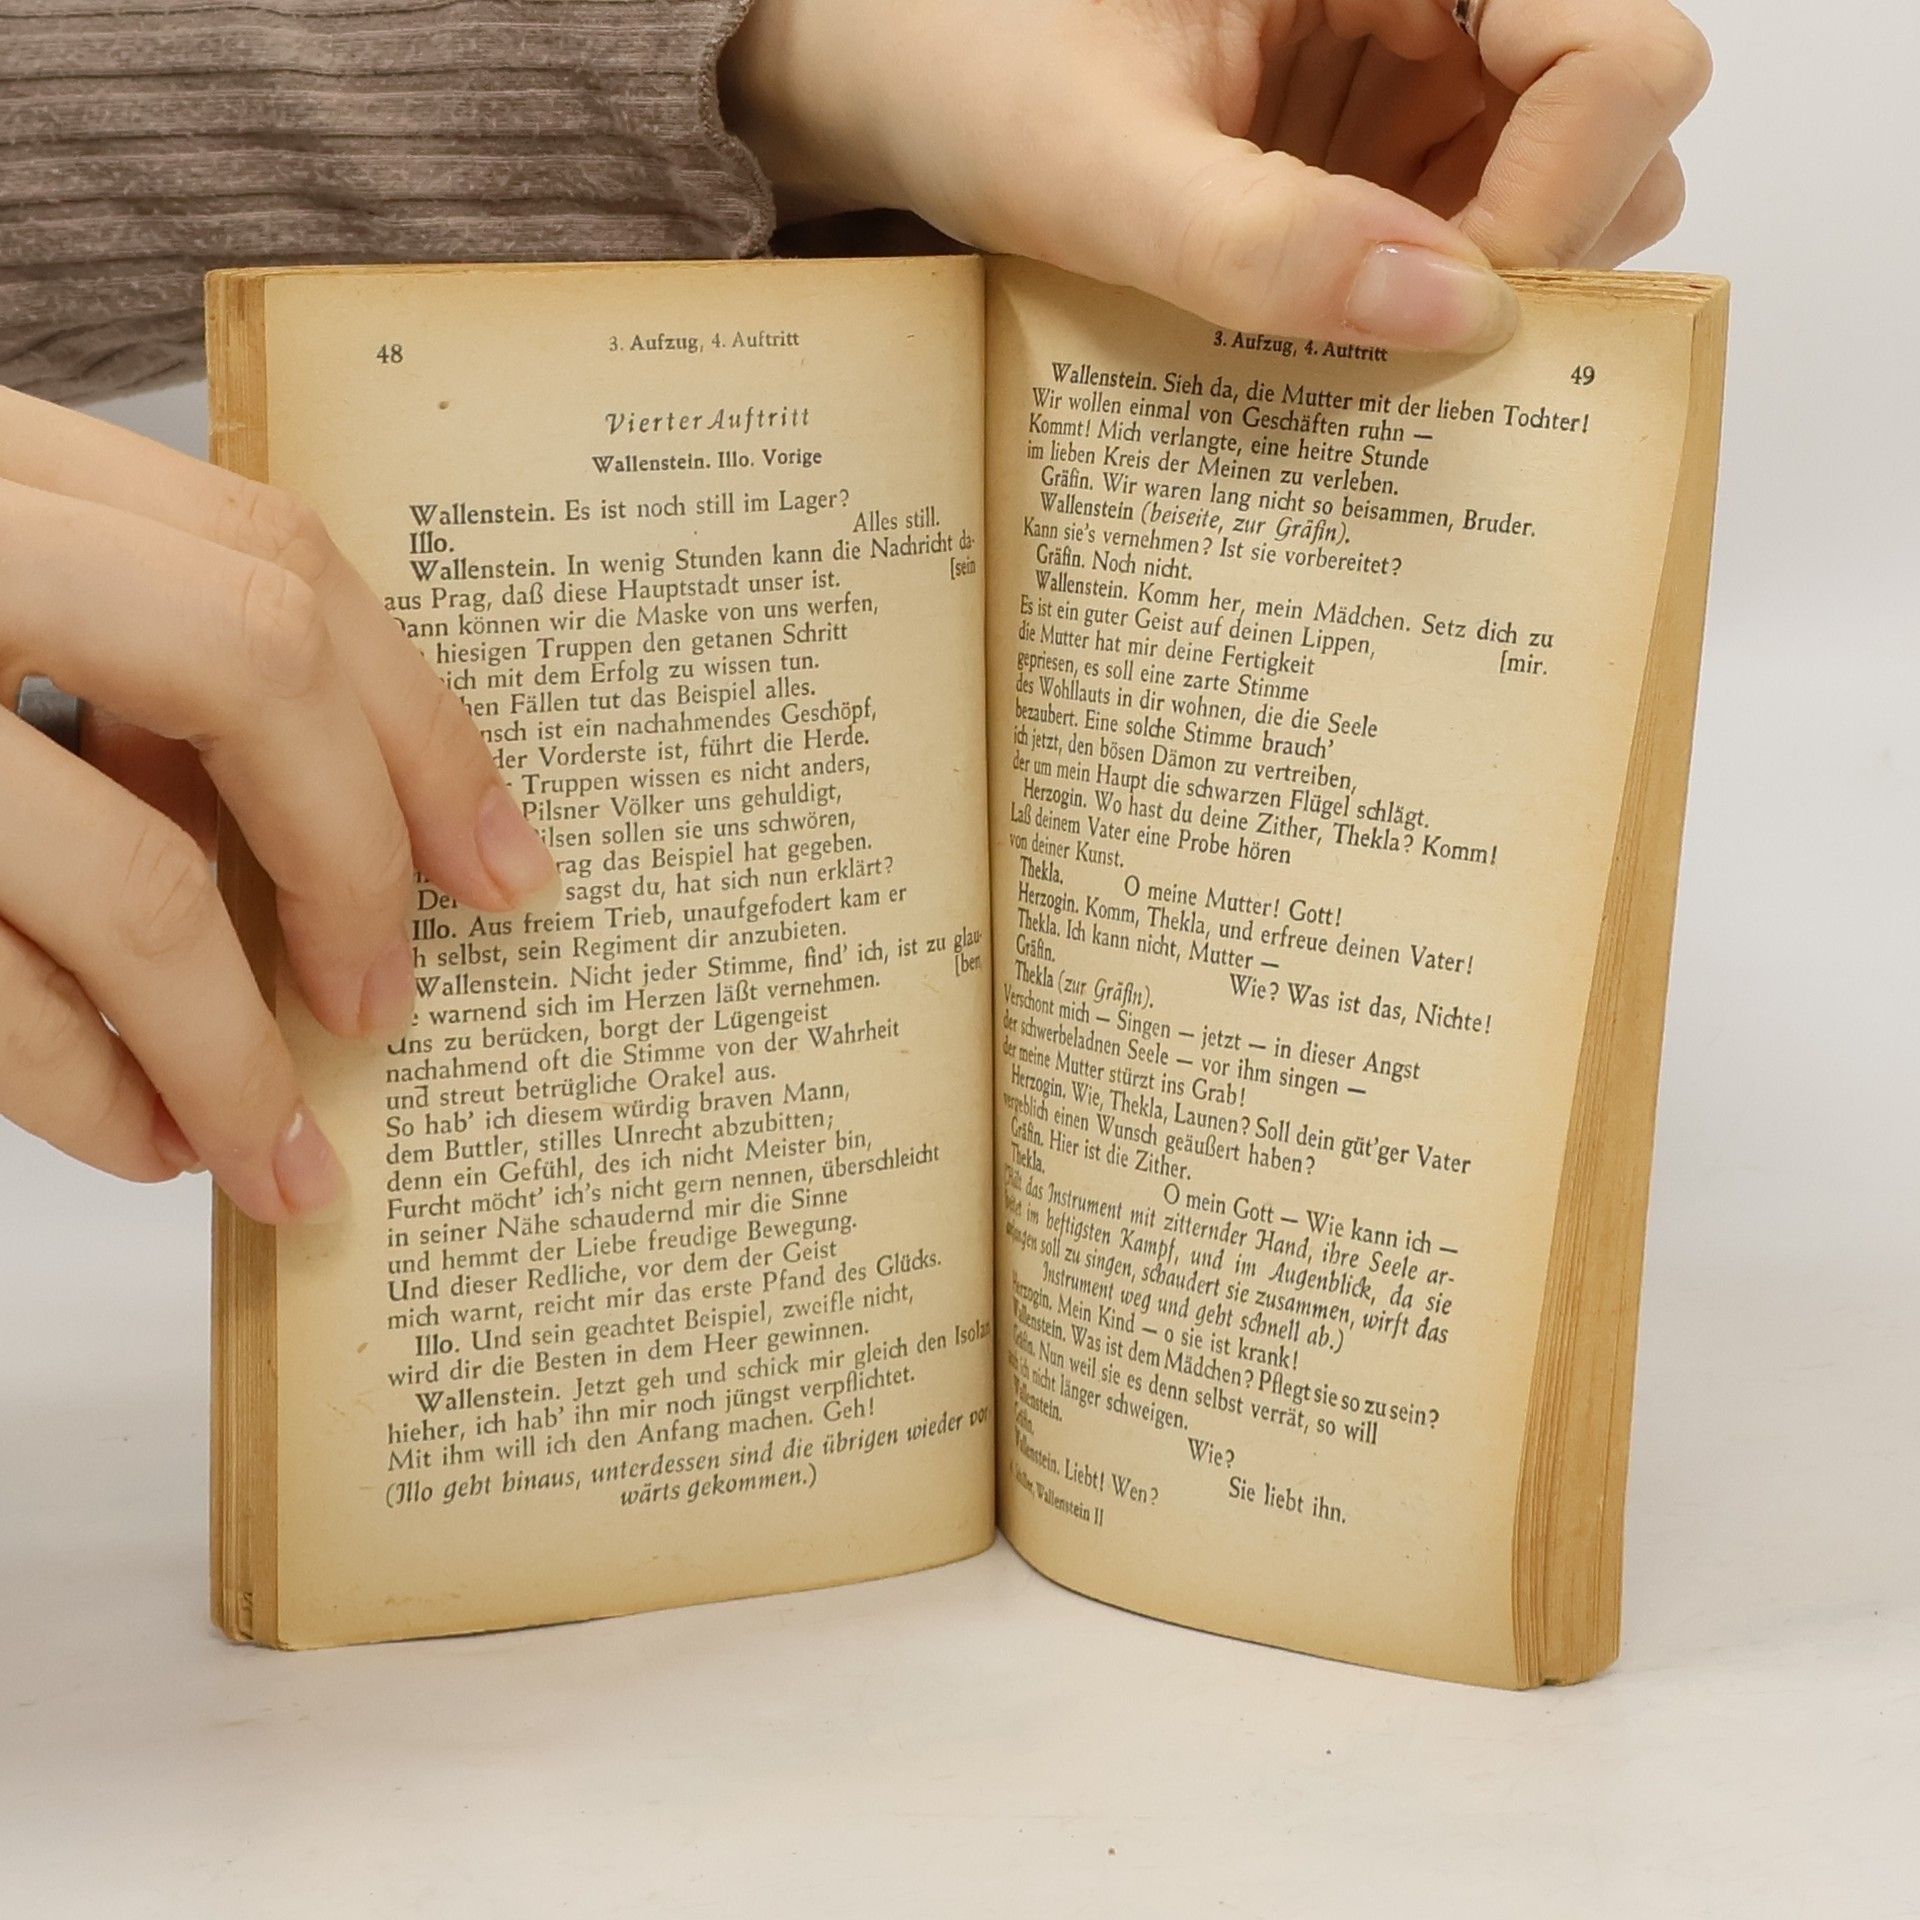 48
3. Aufzug, 4. Auftritt
Vierter Auftritt
Wallenstein. Illo. Vorige
Wallenstein. Es ist noch still im Lager?
Illo. Alles still.
Wallenstein. In wenig Stunden kann die Nachricht da-
[sein
aus Prag, daß diese Hauptstadt unser ist.
Dann können wir die Maske von uns werfen,
hiesigen Truppen den getanen Schritt
mit dem Erfolg zu wissen tun.
Fällen tut das Beispiel alles.
ist ein nachahmendes Geschöpf,
der Vorderste ist, führt die Herde.
Truppen wissen es nicht anders,
Pilsner Völker uns gehuldigt,
Pilsen sollen sie uns schwören,
das Beispiel hat gegeben.
sagst du, hat sich nun erklärt?
Illo. Aus freiem Trieb, unaufgefodert kam er
selbst, sein Regiment dir anzubieten.
Wallenstein. Nicht jeder Stimme, find' ich, ist zu glau-
[ben,
warnend sich im Herzen läßt vernehmen.
Uns zu berücken, borgt der Lügengeist
nachahmend oft die Stimme von der Wahrheit
und streut betrügliche Orakel aus.
So hab' ich diesem würdig braven Mann,
dem Buttler, stilles Unrecht abzubitten;
denn ein Gefühl, des ich nicht Meister bin,
Furcht möcht' ich's nicht gern nennen, überschleicht
in seiner Nähe schaudernd mir die Sinne
und hemmt der Liebe freudige Bewegung.
Und dieser Redliche, vor dem der Geist
mich warnt, reicht mir das erste Pfand des Glücks.
Illo. Und sein geachtet Beispiel, zweifle nicht,
wird dir die Besten in dem Heer gewinnen.
Wallenstein. Jetzt geh und schick mir gleich den Isolan
hieher, ich hab' ihn mir noch jüngst verpflichtet.
Mit ihm will ich den Anfang machen. Geh!
(Illo geht hinaus, unterdessen sind die übrigen wieder vor-
wärts gekommen.)
3. Aufzug, 4. Auftritt
49
Wallenstein. Sieh da, die Mutter mit der lieben Tochter!
Wir wollen einmal von Geschäften ruhn —
Kommt! Mich verlangte, eine heitre Stunde
im lieben Kreis der Meinen zu verleben.
Gräfin. Wir waren lang nicht so beisammen, Bruder.
Wallenstein (beiseite, zur Gräfin).
Kann sie's vernehmen? Ist sie vorbereitet?
Gräfin. Noch nicht.
Wallenstein. Komm her, mein Mädchen. Setz dich zu
[mir.
Es ist ein guter Geist auf deinen Lippen,
die Mutter hat mir deine Fertigkeit
gepriesen, es soll eine zarte Stimme
des Wohllauts in dir wohnen, die die Seele
bezaubert. Eine solche Stimme brauch'
ich jetzt, den bösen Dämon zu vertreiben,
der um mein Haupt die schwarzen Flügel schlägt.
Herzogin. Wo hast du deine Zither, Thekla? Komm!
Laß deinem Vater eine Probe hören
von deiner Kunst.
Thekla. O meine Mutter! Gott!
Herzogin. Komm, Thekla, und erfreue deinen Vater!
Thekla. Ich kann nicht, Mutter —
Gräfin. Wie? Was ist das, Nichte!
Thekla (zur Gräfin).
Verschont mich — Singen — jetzt — in dieser Angst
der schwerbeladnen Seele — vor ihm singen —
der meine Mutter stürzt ins Grab!
Herzogin. Wie, Thekla, Launen? Soll dein güt'ger Vater
vergeblich einen Wunsch geäußert haben?
Gräfin. Hier ist die Zither.
Thekla. O mein Gott — Wie kann ich —
(Hält das Instrument mit zitternder Hand, ihre Seele ar-
beitet im heftigsten Kampf, und im Augenblick, da sie
anfangen soll zu singen, schaudert sie zusammen, wirft das
Instrument weg und geht schnell ab.)
Herzogin. Mein Kind — o sie ist krank!
Wallenstein. Was ist dem Mädchen? Pflegt sie so zu sein?
Gräfin. Nun weil sie es denn selbst verrät, so will
auch ich nicht länger schweigen.
Wallenstein. Wie?
Gräfin. Sie liebt ihn.
Wallenstein. Liebt! Wen?
Schiller, Wallenstein II